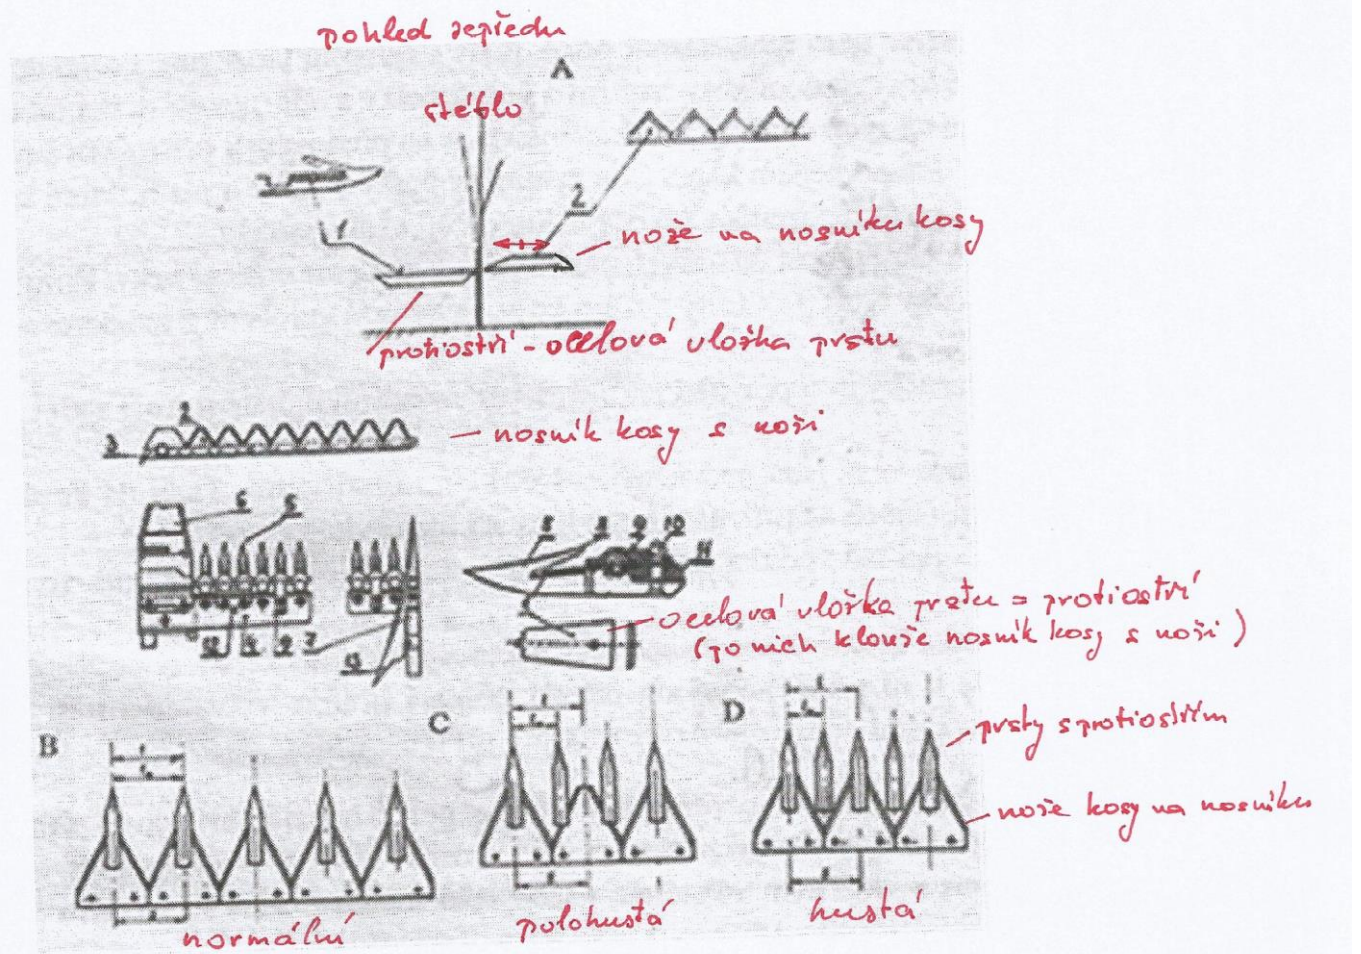 pohled zepředu
A
stéblo
2
1
nože na nosníku kosy
protiostří - ocelová vložka prstu
2
3
nosník kosy s noži
6 5
5 8 9 10
11
ocelová vložka prstu = protiostří
(po nich klouže nosník kosy s noži)
7
C
D
B
prsty s protiostřím
nože kosy na nosníku
normální
polohustá
hustá